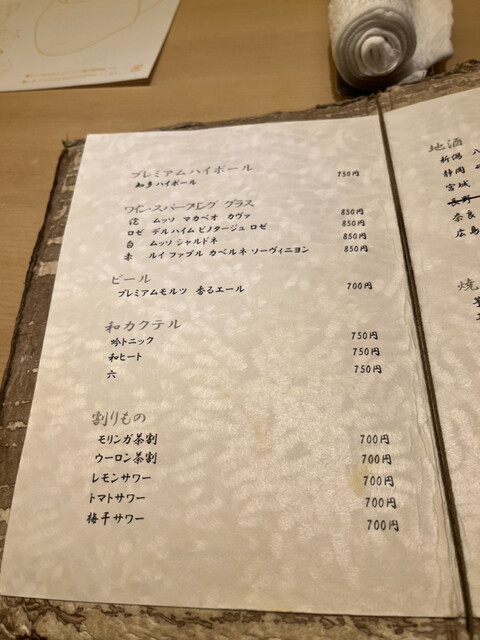 プレミアムハイボール
知多ハイボール 750円
ワイン・スパークリング グラス
泡 ムッソ マカベオ カヴァ 850円
ロゼ デルハイム ピノタージュ ロゼ 850円
白 ムッソ シャルドネ 850円
赤 ルイ ファブル カベルネ ソーヴィニヨン 850円
ビール
プレミアムモルツ 香るエール 700円
和カクテル
吟トニック 750円
和ヒート 750円
六 750円
割りもの
モリンガ茶割 700円
ウーロン茶割 700円
レモンサワー 700円
トマトサワー 700円
梅干サワー 700円
地酒
新潟 八
静岡
宮城
長野
奈良
広島
焼